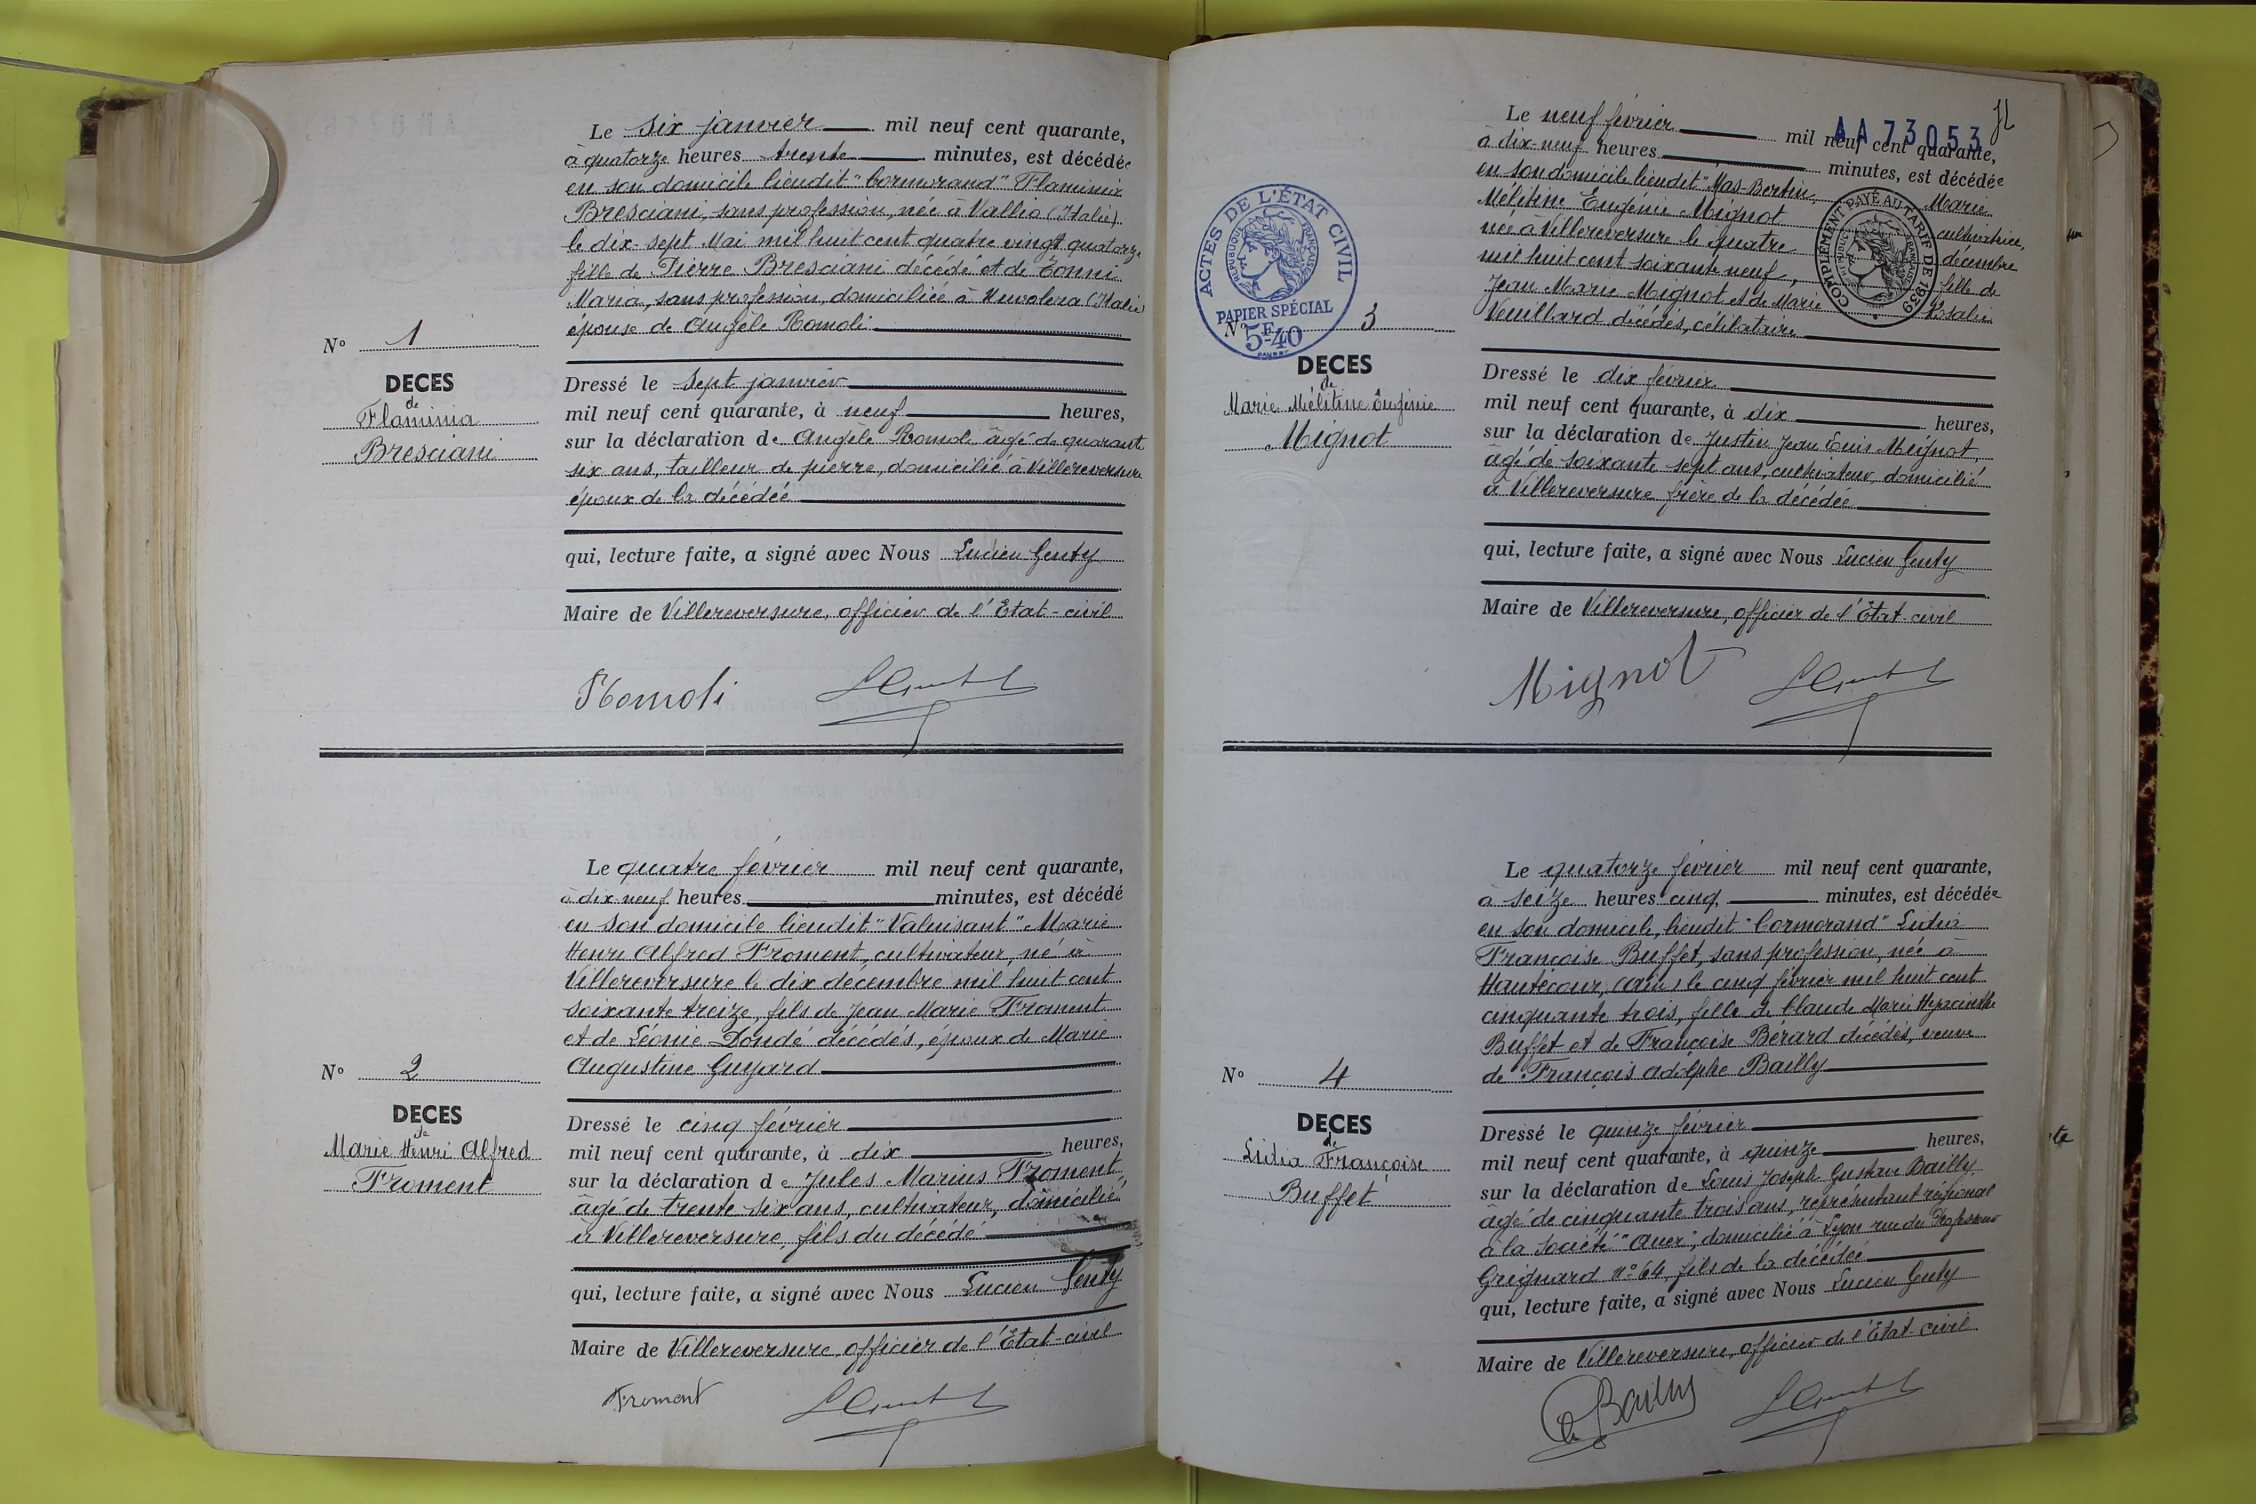 Le six janvier mil neuf cent quarante,
à quatorze heures trente minutes, est décédée
en son domicile lieudit "Cormorand" Flaminia
Bresciani, sans profession, née à Vallio (Italie)
le dix-sept Mai mil huit cent quatre vingt quatorze
fille de Pierre Bresciani décédé et de Tonni
Maria, sans profession, domiciliée à (Italie)
épouse de Angèle Romoli
N° 1
DECES
de
Flaminia
Bresciani
Dressé le sept janvier
mil neuf cent quarante, à neuf heures,
sur la déclaration de Angèle Romoli âgé de quarante
six ans, tailleur de pierre, domicilié à Villereversure
époux de la décédée
qui, lecture faite, a signé avec Nous Lucien Genty
Maire de Villereversure, officier de l'État-civil
Romoli
LGenty
Le quatre février mil neuf cent quarante,
à dix-neuf heures minutes, est décédé
en son domicile lieudit "Valuisant" Marie
Henri Alfred Froment, cultivateur, né à
Villereversure le dix décembre mil huit cent
soixante treize, fils de Jean Marie Froment
et de Léonie Dondé décédés, époux de Marie
Augustine Guyard
N° 2
DECES
de
Marie Henri Alfred
Froment
Dressé le cinq février
mil neuf cent quarante, à dix heures,
sur la déclaration de Jules Marius Froment,
âgé de trente-six ans, cultivateur, domicilié
à Villereversure, fils du décédé
qui, lecture faite, a signé avec Nous Lucien Genty
Maire de Villereversure, officier de l'État-civil
Froment
LGenty
AA73053
Le neuf février mil neuf cent quarante,
à dix-neuf heures minutes, est décédée
en son domicile lieudit "Mas-Bertin, Marie
Mélitine Eugénie Mignot cultivatrice,
née à Villereversure le quatre décembre
mil huit cent soixante neuf, fille de
Jean Marie Mignot et de Marie Rosalie
Veuillard décédés, célibataire
ACTES DE L'ÉTAT CIVIL
RÉPUBLIQUE FRANÇAISE
PAPIER SPÉCIAL
5F40
COMPLÉMENT PAYÉ AU TARIF DE 1939
N° 3
DECES
de
Marie Mélitine Eugénie
Mignot
Dressé le dix février
mil neuf cent quarante, à dix heures,
sur la déclaration de Justin Jean Louis Mignot,
âgé de soixante sept ans, cultivateur, domicilié
à Villereversure frère de la décédée
qui, lecture faite, a signé avec Nous Lucien Genty
Maire de Villereversure, officier de l'État-civil
Mignot
LGenty
Le quatorze février mil neuf cent quarante,
à seize heures cinq minutes, est décédée
en son domicile, lieudit "Cormorand" Lidia
Françoise Buffet, sans profession, née à
Hautecour, (Ain) le cinq février mil huit cent
cinquante trois, fille de Claude Marie Hyacinthe
Buffet et de Françoise Bérard décédés, veuve
de François Adolphe Bailly
N° 4
DECES
de
Lidia Françoise
Buffet
Dressé le quinze février
mil neuf cent quarante, à quinze heures,
sur la déclaration de Louis Joseph Gustave Bailly
âgé de cinquante trois ans, représentant régional
à la Société "Auer", domicilié à Lyon rue du Professeur
Grignard n° 64, fils de la décédée
qui, lecture faite, a signé avec Nous Lucien Genty
Maire de Villereversure, officier de l'État-civil
Bailly
LGenty